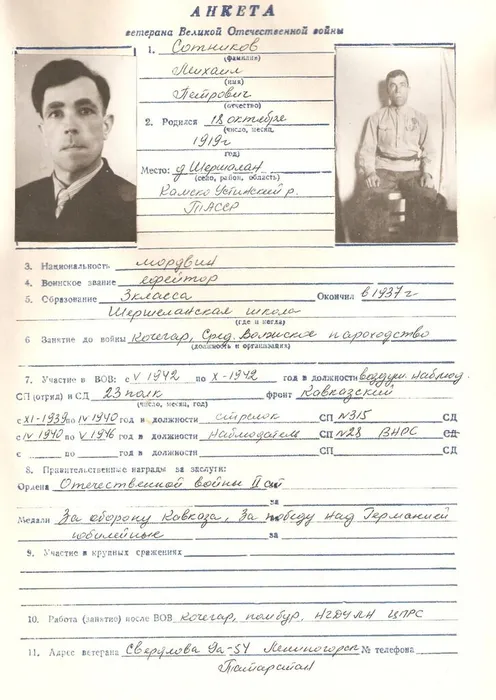 АНКЕТА
ветерана Великой Отечественной войны
1. Сотников
(фамилия)
Михаил
(имя)
Петрович
(отчество)
2. Родился 18 октября
(число, месяц,
1919г
год)
Место: д Шершалан
(село, район, область)
Камско Устинский р.
ТАССР
3. Национальность мордвин
4. Воинское звание ефрейтор
5. Образование 3 класса Окончил в 1937г
Шершеланская школа
(где и когда)
6 Занятие до войны Кочегар, Сред. Волжское пароходство
(должность и организация)
7. Участие в ВОВ: с V 1942 по X-1942 год в должности воздушн. наблюд.
СП (отряд) и СД 23 полк фронт Кавказский
(число, месяц, год)
с XI-1939 по IV 1940 год в должности стрелок СП N315 СД
с IV 1940 по V 1946 год в должности наблюдатель СП N28 ВНОС СД
с по год в должности СП СД
8. Правительственные награды за заслуги:
Ордена Отечественной войны II ст
за
Медали За оборону Кавказа, За победу над Германией
юбилейные за
9. Участие в крупных сражениях
10. Работа (занятие) после ВОВ Кочегар, помбур, НГДУ ЛН ЦПРС
11. Адрес ветерана Свердлова 9а-54 Лениногорск № телефона
Татарстан